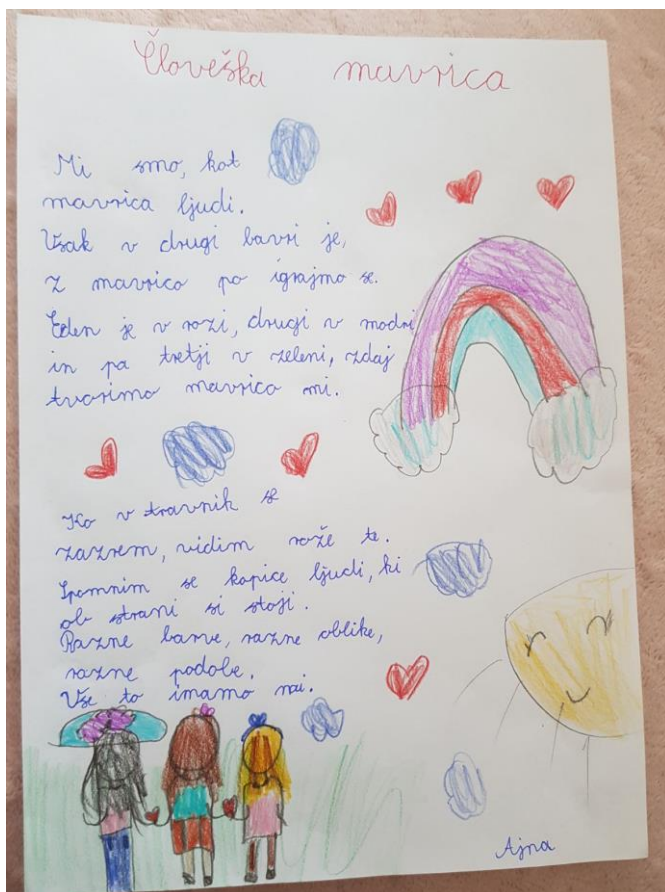 Človeška mavrica
Mi smo, kot
mavrica ljudi.
Vsak v drugi bavri je,
z mavrico po igrajmo se.
Eden je v rozi, drugi v modri
in pa tretji v zeleni, zdaj
tvorimo mavrico mi.
Ko v travnik se
zazrem, vidim rože te.
Spomnim se kopice ljudi, ki
ob strani si stoji.
Razne barve, razne oblike,
razne podobe.
Vse to imamo mi.
Ajna